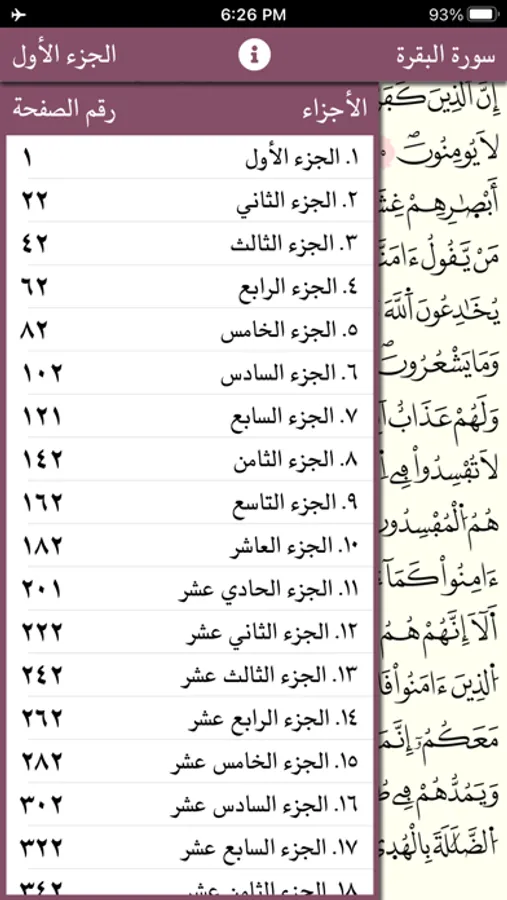 6:26 PM 93%
سورة البقرة الجزء الأول
الأجزاء رقم الصفحة
١. الجزء الأول ١
٢. الجزء الثاني ٢٢
٣. الجزء الثالث ٤٢
٤. الجزء الرابع ٦٢
٥. الجزء الخامس ٨٢
٦. الجزء السادس ١٠٢
٧. الجزء السابع ١٢١
٨. الجزء الثامن ١٤٢
٩. الجزء التاسع ١٦٢
١٠. الجزء العاشر ١٨٢
١١. الجزء الحادي عشر ٢٠١
١٢. الجزء الثاني عشر ٢٢٢
١٣. الجزء الثالث عشر ٢٤٢
١٤. الجزء الرابع عشر ٢٦٢
١٥. الجزء الخامس عشر ٢٨٢
١٦. الجزء السادس عشر ٣٠٢
١٧. الجزء السابع عشر ٣٢٢
١٨. الجزء الثامن عشر ٣٤٢
إِنَّ اَ۬لذِينَ
لَا يُومِنُونَۖ
أَبْصٰ۪رِهِمْ
مَنْ يَّقُولُ ءَامَنَّا
يُخَٰدِعُونَ اَ۬للَّهَ
وَمَا يَشْعُرُونَۖ
وَلَهُمْ عَذَابٌ
لَا تُفْسِدُواْ فِے
هُمُ اُ۬لْمُفْسِدُونَ
ءَامِنُواْ كَمَآ
أَلَآ إِنَّهُمْ هُمُ
اُ۬لذِينَ ءَامَنُواْ
مَعَكُمُۥٓ إِنَّمَا
وَيَمُدُّهُمْ فِے
اُ۬لضَّلَٰلَةَ بِالْهُد۪ىٰ